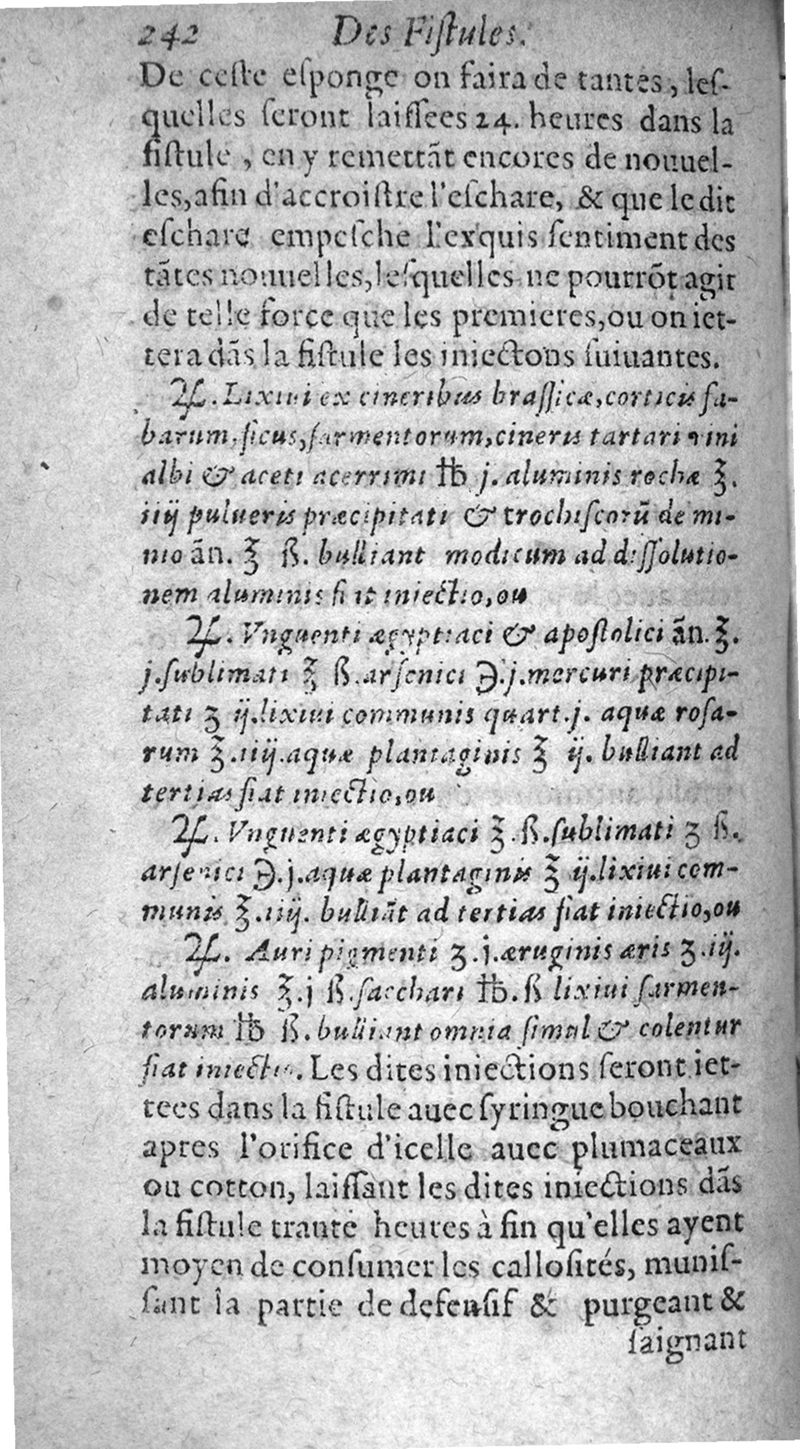 242 Des Fiſtules.
De ceſte eſponge on faira de tantes, leſ-
quelles ſeront laiſſees 24. heures dans la
fiſtule, en y remettãt encores de nouuel-
les, afin d'accroiſtre l'eſchare, & que le dit
eſchare empeſche l'exquis ſentiment des
tãtes nouuelles, leſquelles ne pourrõt agir
de telle force que les premieres, ou on iet-
tera dãs la fiſtule les iniectons ſuiuantes.
℞. Lixiui ex cineribus braſſicæ, corticis fa-
barum, ficus, ſarmentorum, cineris tartari vini
albi & aceti acerrimi ℔ j. aluminis rochæ ℥.
iiij pulueris præcipitati & trochiſcorũ de mi-
nio ãn. ℥ ß. bulliant modicum ad diſſolutio-
nem aluminis fiat iniectio, ou
℞. Vnguenti ægyptiaci & apoſtolici ãn. ℥.
j. ſublimati ℥ ß. arſenici ℈. j. mercuri præcipi-
tati ʒ ij. lixiui communis quart. j. aquæ roſa-
rum ℥. iiij. aquæ plantaginis ℥ ij. bulliant ad
tertias fiat iniectio, ou
℞. Vnguenti ægyptiaci ℥. ß. ſublimati ʒ ß.
arſenici ℈. j. aquæ plantaginis ℥ ij. lixiui com-
munis ℥. iiij. bulliãt ad tertias fiat iniectio, ou
℞. Auri pigmenti ʒ. j. æruginis æris ʒ. iij.
aluminis ℥. j ß. ſacchari ℔. ß lixiui ſarmen-
torum ℔ ß. bulliant omnia ſimul & colentur
fiat iniectio. Les dites iniections ſeront iet-
tees dans la fiſtule auec ſyringue bouchant
apres l'orifice d'icelle auec plumaceaux
ou cotton, laiſſant les dites iniections dãs
la fiſtule trante heures à fin qu'elles ayent
moyen de conſumer les calloſités, muniſ-
ſant la partie de defenſif & purgeant &
ſaignant